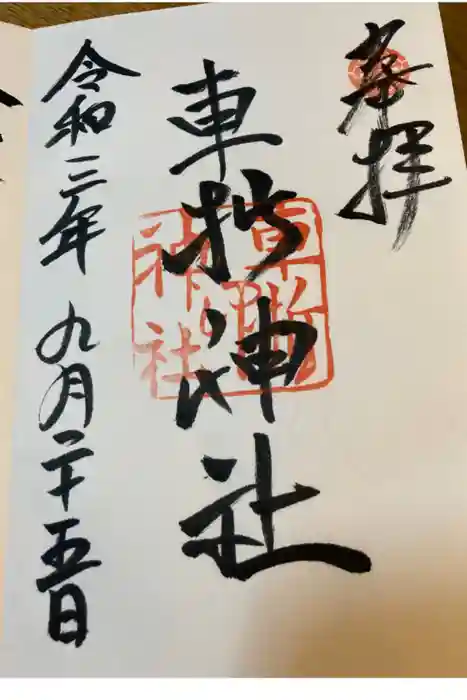 奉拝
車折神社
車折
神社
令和三年 九月二十五日